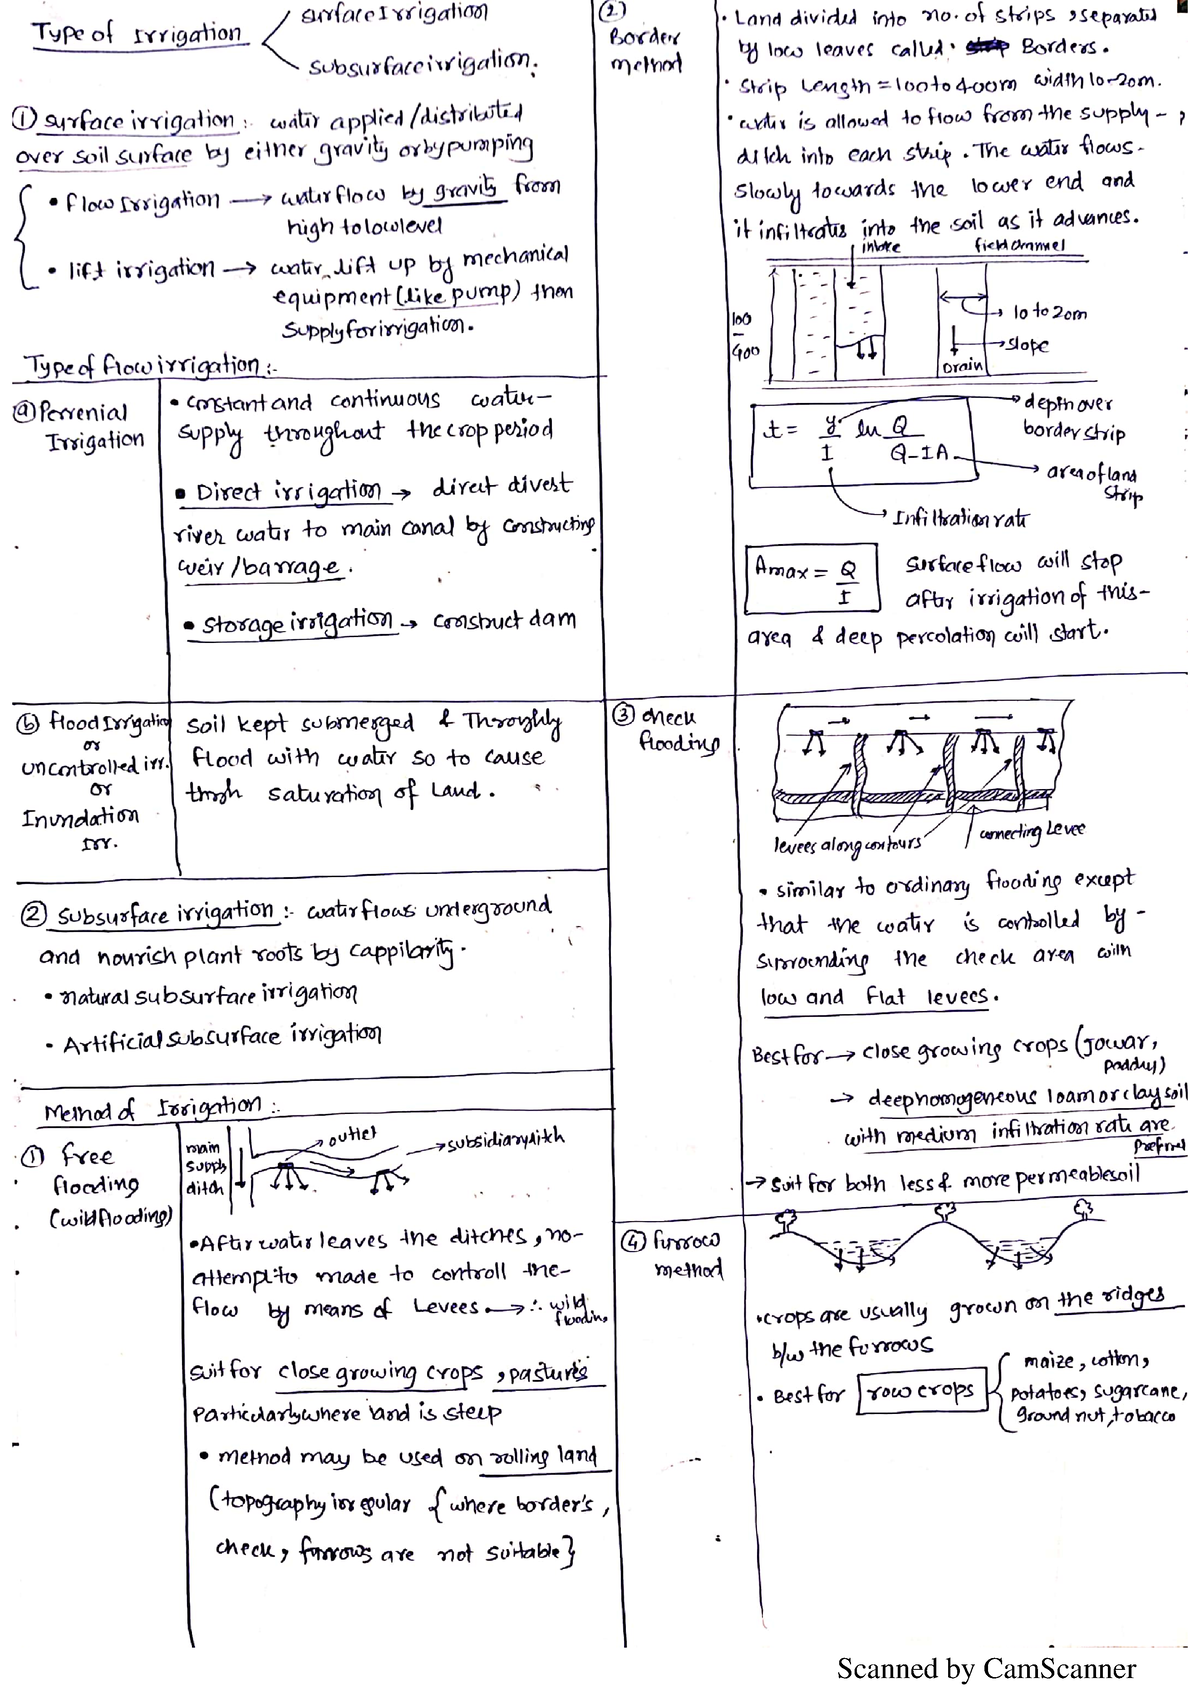 Type of Irrigation
surface Irrigation
subsurface irrigation.
① surface irrigation :- water applied/distributed
over soil surface by either gravity or by pumping
• flow Irrigation → water flow by gravity from
high to low level
• lift irrigation → water lift up by mechanical
equipment (like pump) then
supply for irrigation.
Type of flow irrigation :-
ⓐ Perrenial
Irrigation
• constant and continuous water-
supply throughout the crop period
• Direct irrigation → direct divest
river water to main canal by constructing
weir/barrage.
• Storage irrigation → construct dam
ⓑ flood Irrigation
or
uncontrolled irr.
or
Inundation
Irr.
soil kept submerged & Throghly
flood with water so to cause
saturation of Land.
② subsurface irrigation :- water flows underground
and nourish plant roots by cappilarity.
• natural subsurface irrigation
• Artificial subsurface irrigation
Method of Irrigation :-
① free
flooding
(wild flooding)
main
supply
ditch
outlet
subsidiary ditch
• After water leaves the ditches, no-
attempt to made to controll the-
flow by means of Levees. → ∴ wild
flooding
suit for close growing crops, pastures
particularly where land is steep
• method may be used on rolling land
(topography irregular {where border's,
check, furrows are not suitable}
②
Border
method
• Land divided into no. of strips, separated
by low leaves called Borders.
• strip Length = 100 to 400m width 10-20m.
• water is allowed to flow from the supply-,
ditch into each strip. The water flows-
slowly towards the lower end and
it infiltrates into the soil as it advances.
field channel
100
-
400
10 to 20m
slope
Drain
t = y/I ln Q/(Q-IA)
depth over
border strip
area of land
strip
Infiltration rate
Amax = Q/I
surface flow will stop
after irrigation of this-
area & deep percolation will start.
③ check
flooding
levees along contours
connecting Levee
• similar to ordinary flooding except
that the water is controlled by-
surrounding the check area with
low and flat levees.
Best for → close growing crops (Jowar,
paddy)
→ deep homogeneous loam or clay soil
with medium infiltration rate are
→ suit for both less & more permeable soil
④ furrow
method
• crops are usually grown on the ridges
b/w the furrows
• Best for row crops { maize, cotton,
potatoes, sugarcane,
ground nut, tobacco
Scanned by CamScanner